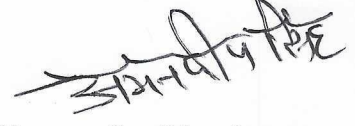 अमनदीप सिंह